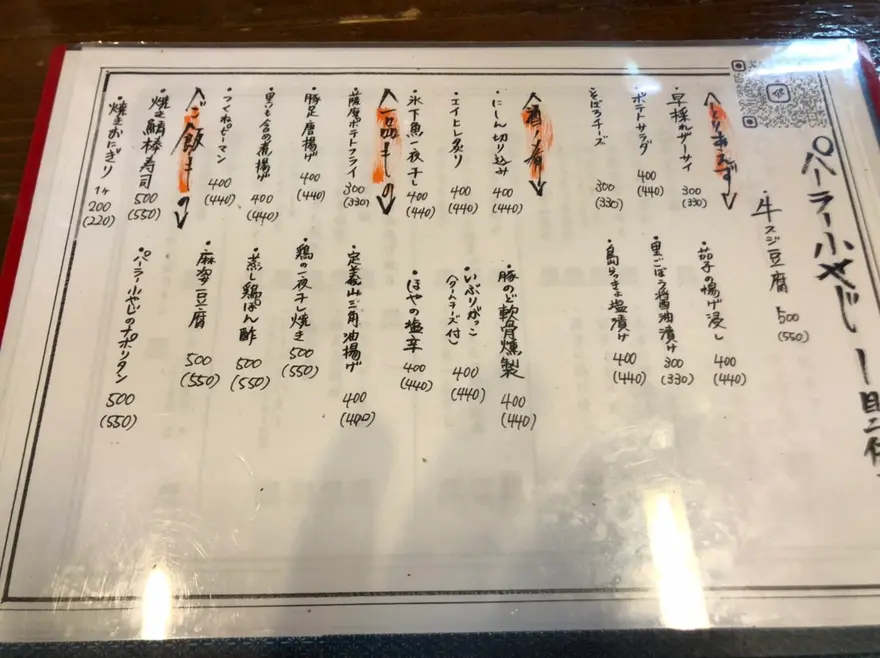 パーラー小やじ
・牛スジ豆腐 500 (550)
へとりあえず
・早採れザーサイ 300 (330)
・ポテトサラダ 400 (440)
・そばろチーズ 300 (330)
・茄子の揚げ浸し 400 (440)
・里ごぼう醤油漬け 300 (330)
・島らっきょ塩漬け 400 (440)
へ酒ノ肴
・にしん切り込み 400 (440)
・エイヒレ炙り 400 (440)
・氷下魚一夜干し 400 (440)
・豚のど軟骨燻製 400 (440)
・いぶりがっこ (クリームチーズ付) 400 (440)
・ほやの塩辛 400 (440)
へ一品もの
・薩摩ポテトフライ 300 (330)
・豚足唐揚げ 400 (440)
・里いも含め煮揚げ 400 (440)
・つくねピーマン 400 (440)
・定義山三角油揚げ 400 (440)
・鶏の一夜干し焼き 500 (550)
・蒸し鶏ぽん酢 500 (550)
・麻婆豆腐 500 (550)
へご飯もの
・焼き鯖棒寿司 500 (550)
・焼きおにぎり 1ケ 200 (220)
・パーラー小やじのナポリタン 500 (550)